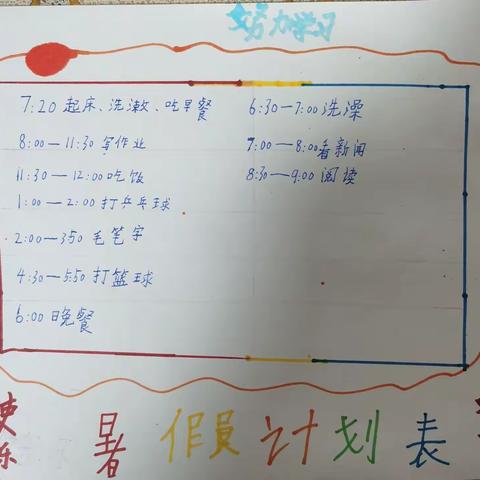 努力学习
7:20 起床、洗漱、吃早餐
8:00—11:30 写作业
11:30—12:00 吃饭
1:00—2:00 打乒乓球
2:00—350 毛笔字
4:30—5:50 打篮球
6:00 晚餐
6:30—7:00 洗澡
7:00—8:00 看新闻
8:30—9:00 阅读
暑假计划表
乐